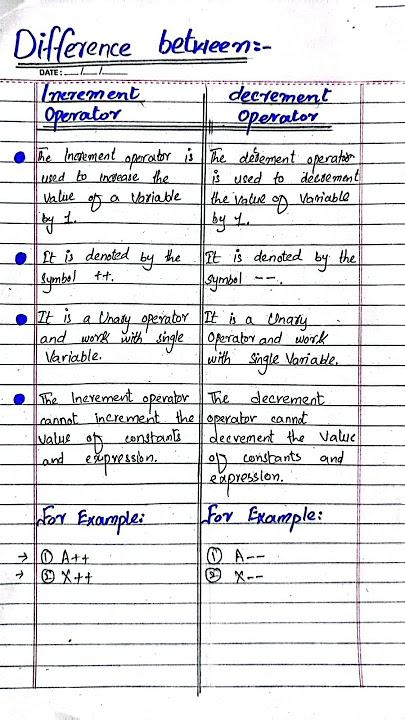 Difference between:-
DATE: __/__/__
Increment
Operator
The Increment operator is
used to increase the
Value of a Variable
by 1.
It is denoted by the
symbol ++.
It is a Unary operator
and work with single
Variable.
The Increment operator
cannot increment the
value of constants
and expression.
For Example:
→ ① A++
→ ② X++
decrement
Operator
The decrement operator
is used to decrement
the value of Variable
by 1.
It is denoted by the
symbol --.
It is a Unary
Operator and work
with Single Variable.
The decrement
operator cannot
decrement the Value
of constants and
expression.
For Example:
① A--
② X--